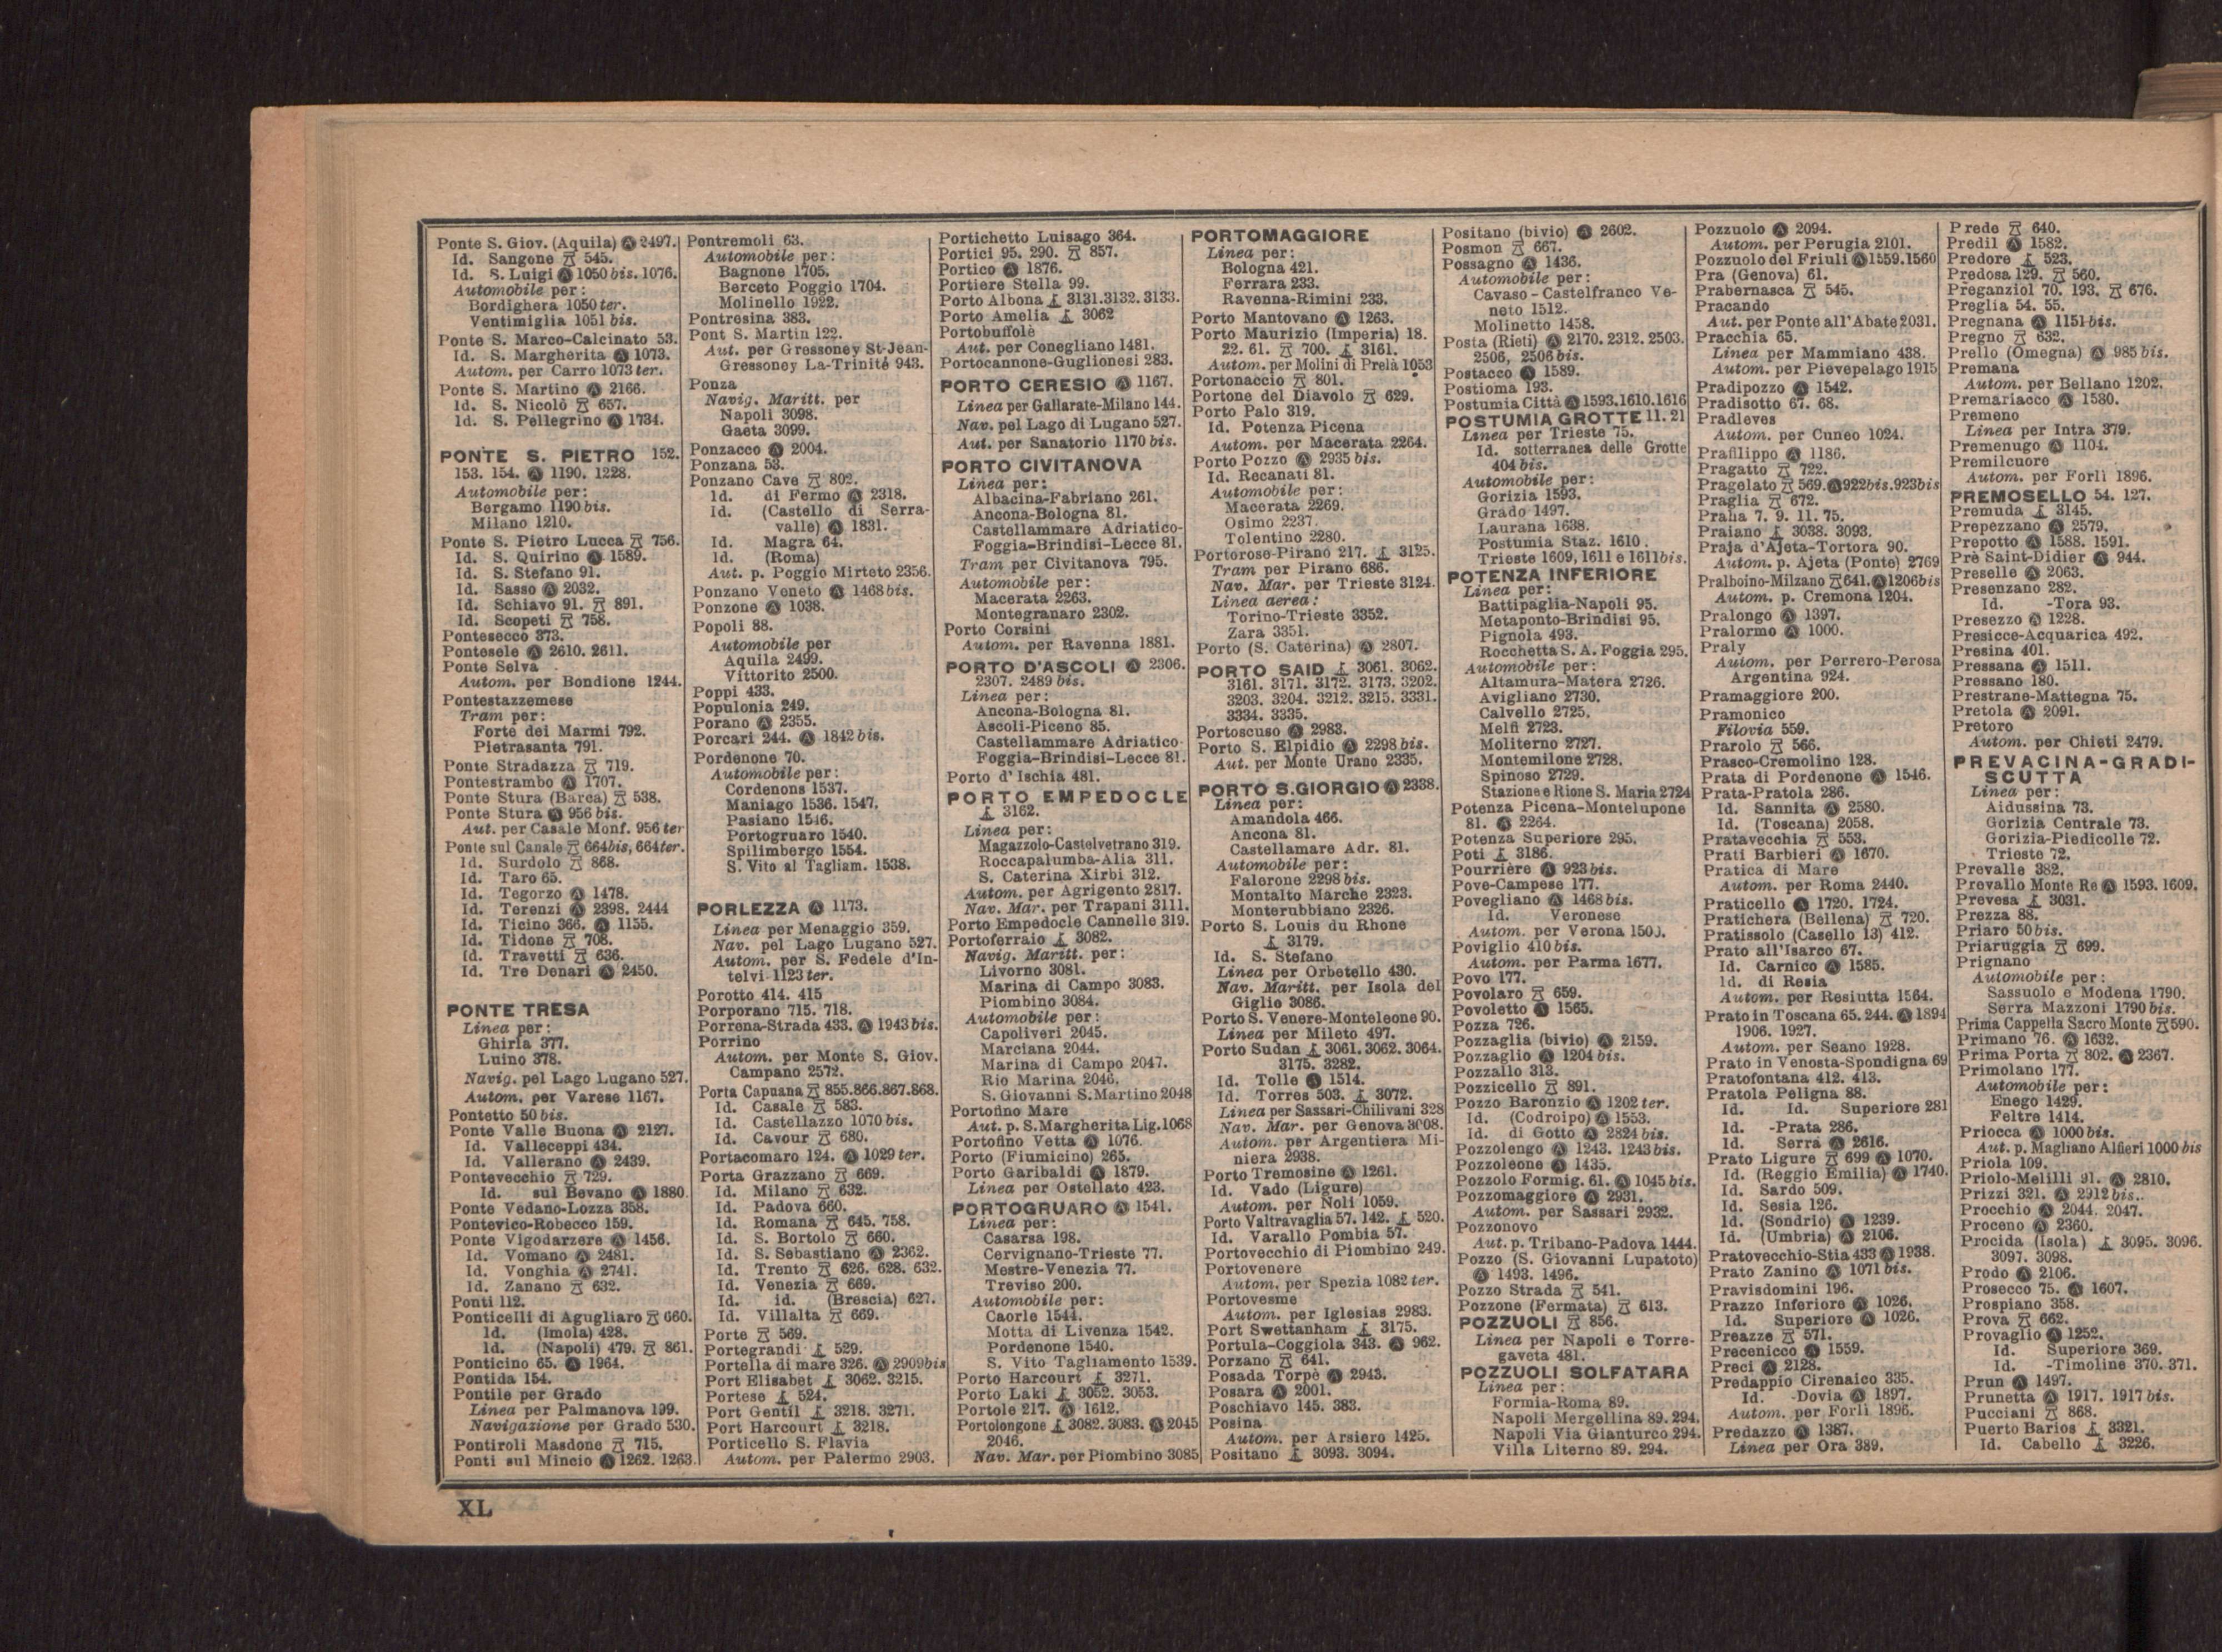 Ponte S. Giov. (Aquila) Ⓐ 2497.
Id. Sangone 545.
Id. S. Luigi Ⓐ 1050 bis. 1076.
Automobile per:
Bordighera 1050 ter.
Ventimiglia 1051 bis.
Ponte S. Marco-Calcinato 53.
Id. S. Margherita Ⓐ 1073.
Autom. per Carro 1073 ter.
Ponte S. Martino Ⓐ 2166.
Id. S. Nicolò 657.
Id. S. Pellegrino Ⓐ 1734.
PONTE S. PIETRO 152.
153. 154. Ⓐ 1190. 1228.
Automobile per:
Bergamo 1190 bis.
Milano 1210.
Ponte S. Pietro Lucca 756.
Id. S. Quirino Ⓐ 1589.
Id. S. Stefano 91.
Id. Sasso Ⓐ 2032.
Id. Schiavo 91. 891.
Id. Scopeti 758.
Pontesecco 373.
Pontesele Ⓐ 2610. 2611.
Ponte Selva
Autom. per Bondione 1244.
Pontestazzemese
Tram per:
Forte dei Marmi 792.
Pietrasanta 791.
Ponte Stradazza 719.
Pontestrambo Ⓐ 1707.
Ponte Stura (Barca) 538.
Ponte Stura Ⓐ 956 bis.
Aut. per Casale Monf. 956 ter
Ponte sul Canale 664bis, 664ter.
Id. Surdolo 868.
Id. Taro 65.
Id. Tegorzo Ⓐ 1478.
Id. Terenzi Ⓐ 2398. 2444
Id. Ticino 366. Ⓐ 1155.
Id. Tidone 708.
Id. Travetti 636.
Id. Tre Denari Ⓐ 2450.
PONTE TRESA
Linea per:
Ghirla 377.
Luino 378.
Navig. pel Lago Lugano 527.
Autom. per Varese 1167.
Pontetto 50 bis.
Ponte Valle Buona Ⓐ 2127.
Id. Valleceppi 434.
Id. Vallerano Ⓐ 2439.
Pontevecchio 729.
Id. sul Bevano Ⓐ 1880.
Ponte Vedano-Lozza 358.
Pontevico-Robecco 159.
Ponte Vigodarzere Ⓐ 1456.
Id. Vomano Ⓐ 2481.
Id. Vonghia Ⓐ 2741.
Id. Zanano 632.
Ponti 112.
Ponticelli di Agugliaro 660.
Id. (Imola) 428.
Id. (Napoli) 479. 861.
Ponticino 65. Ⓐ 1964.
Pontida 154.
Pontile per Grado
Linea per Palmanova 199.
Navigazione per Grado 530.
Pontiroli Masdone 715.
Ponti sul Mincio Ⓐ 1262. 1263.
Pontremoli 63.
Automobile per:
Bagnone 1705.
Berceto Poggio 1704.
Molinello 1922.
Pontresina 383.
Pont S. Martin 122.
Aut. per Gressoney St-Jean-
Gressoney La-Trinité 943.
Ponza
Navig. Maritt. per
Napoli 3098.
Gaeta 3099.
Ponzacco Ⓐ 2004.
Ponzana 53.
Ponzano Cave 802.
Id. di Fermo Ⓐ 2318.
Id. (Castello di Serra-
valle) Ⓐ 1831.
Id. Magra 64.
Id. (Roma)
Aut. p. Poggio Mirteto 2356.
Ponzano Veneto Ⓐ 1468 bis.
Ponzone Ⓐ 1038.
Popoli 88.
Automobile per
Aquila 2499.
Vittorito 2500.
Poppi 433.
Populonia 249.
Porano Ⓐ 2355.
Porcari 244. Ⓐ 1842 bis.
Pordenone 70.
Automobile per:
Cordenons 1537.
Maniago 1536. 1547.
Pasiano 1546.
Portogruaro 1540.
Spilimbergo 1554.
S. Vito al Tagliam. 1538.
PORLEZZA Ⓐ 1173.
Linea per Menaggio 359.
Nav. pel Lago Lugano 527.
Autom. per S. Fedele d'In-
telvi 1123 ter.
Porotto 414. 415
Porporano 715. 718.
Porrena-Strada 433. Ⓐ 1943 bis.
Porrino
Autom. per Monte S. Giov.
Campano 2572.
Porta Capuana 855.866.867.868.
Id. Casale 583.
Id. Castellazzo 1070 bis.
Id. Cavour 680.
Portacomaro 124. Ⓐ 1029 ter.
Porta Grazzano 669.
Id. Milano 632.
Id. Padova 660.
Id. Romana 645. 758.
Id. S. Bortolo 660.
Id. S. Sebastiano Ⓐ 2362.
Id. Trento 626. 628. 632.
Id. Venezia 669.
Id. id. (Brescia) 627.
Id. Villalta 669.
Porte 569.
Portegrandi 529.
Portella di mare 326. Ⓐ 2909bis
Port Elisabet 3062. 3215.
Portese 524.
Port Gentil 3218. 3271.
Port Harcourt 3218.
Porticello S. Flavia
Autom. per Palermo 2903.
Portichetto Luisago 364.
Portici 95. 290. 857.
Portico Ⓐ 1876.
Portiere Stella 99.
Porto Albona 3131.3132. 3133.
Porto Amelia 3062
Portobuffolè
Aut. per Conegliano 1481.
Portocannone-Guglionesi 283.
PORTO CERESIO Ⓐ 1167.
Linea per Gallarate-Milano 144.
Nav. pel Lago di Lugano 527.
Aut. per Sanatorio 1170 bis.
PORTO CIVITANOVA
Linea per:
Albacina-Fabriano 261.
Ancona-Bologna 81.
Castellammare Adriatico-
Foggia-Brindisi-Lecce 81.
Tram per Civitanova 795.
Automobile per:
Macerata 2263.
Montegranaro 2302.
Porto Corsini
Autom. per Ravenna 1881.
PORTO D'ASCOLI Ⓐ 2306.
2307. 2489 bis.
Linea per:
Ancona-Bologna 81.
Ascoli-Piceno 85.
Castellammare Adriatico
Foggia-Brindisi-Lecce 81.
Porto d' Ischia 481.
PORTO EMPEDOCLE
3162.
Linea per:
Magazzolo-Castelvetrano 319.
Roccapalumba-Alia 311.
S. Caterina Xirbi 312.
Autom. per Agrigento 2817.
Nav. Mar. per Trapani 3111.
Porto Empedocle Cannelle 319.
Portoferraio 3082.
Navig. Maritt. per:
Livorno 3081.
Marina di Campo 3083.
Piombino 3084.
Automobile per:
Capoliveri 2045.
Marciana 2044.
Marina di Campo 2047.
Rio Marina 2046.
S. Giovanni S. Martino 2048
Portofino Mare
Aut. p. S. Margherita Lig. 1068
Portofino Vetta Ⓐ 1076.
Porto (Fiumicino) 265.
Porto Garibaldi Ⓐ 1879.
Linea per Ostellato 423.
PORTOGRUARO Ⓐ 1541.
Linea per:
Casarsa 198.
Cervignano-Trieste 77.
Mestre-Venezia 77.
Treviso 200.
Automobile per:
Caorle 1544.
Motta di Livenza 1542.
Pordenone 1540.
S. Vito Tagliamento 1539.
Porto Harcourt 3271.
Porto Laki 3052. 3053.
Portole 217. Ⓐ 1612.
Portolongone 3082. 3083. Ⓐ 2045
2046.
Nav. Mar. per Piombino 3085
PORTOMAGGIORE
Linea per:
Bologna 421.
Ferrara 233.
Ravenna-Rimini 233.
Porto Mantovano Ⓐ 1263.
Porto Maurizio (Imperia) 18.
22. 61. 700. 3161.
Autom. per Molini di Prelà 1053
Portonaccio 801.
Portone del Diavolo 629.
Porto Palo 319.
Id. Potenza Picena
Autom. per Macerata 2264.
Porto Pozzo Ⓐ 2935 bis.
Id. Recanati 81.
Automobile per:
Macerata 2269.
Osimo 2237.
Tolentino 2280.
Portorose-Pirano 217. 3125.
Tram per Pirano 686.
Nav. Mar. per Trieste 3124.
Linea aerea:
Torino-Trieste 3352.
Zara 3351.
Porto (S. Caterina) Ⓐ 2807.
PORTO SAID 3061. 3062.
3161. 3171. 3172. 3173. 3202.
3203. 3204. 3212. 3215. 3331.
3334. 3335.
Portoscuso Ⓐ 2983.
Porto S. Elpidio Ⓐ 2298 bis.
Aut. per Monte Urano 2335.
PORTO S. GIORGIO Ⓐ 2338.
Linea per:
Amandola 466.
Ancona 81.
Castellamare Adr. 81.
Automobile per:
Falerone 2298 bis.
Montalto Marche 2323.
Monterubbiano 2326.
Porto S. Louis du Rhone
3179.
Id. S. Stefano
Linea per Orbetello 430.
Nav. Maritt. per Isola del
Giglio 3086.
Porto S. Venere-Monteleone 90.
Linea per Mileto 497.
Porto Sudan 3061. 3062. 3064.
3175. 3282.
Id. Tolle Ⓐ 1514.
Id. Torres 503. 3072.
Linea per Sassari-Chilivani 328
Nav. Mar. per Genova 3008.
Autom. per Argentiera Mi-
niera 2938.
Porto Tremosine Ⓐ 1261.
Id. Vado (Ligure)
Autom. per Noli 1059.
Porto Valtravaglia 57. 142. 520.
Id. Varallo Pombia 57.
Portovecchio di Piombino 249.
Portovenere
Autom. per Spezia 1082 ter.
Portovesme
Autom. per Iglesias 2983.
Port Swettanham 3175.
Portula-Coggiola 343. Ⓐ 962.
Porzano 641.
Posada Torpè Ⓐ 2943.
Posara Ⓐ 2001.
Poschiavo 145. 383.
Posina
Autom. per Arsiero 1425.
Positano 3093. 3094.
Positano (bivio) Ⓐ 2602.
Posmon 667.
Possagno Ⓐ 1436.
Automobile per:
Cavaso - Castelfranco Ve-
neto 1512.
Molinetto 1458.
Posta (Rieti) Ⓐ 2170. 2312. 2503.
2506, 2506 bis.
Postacco Ⓐ 1589.
Postioma 193.
Postumia Città Ⓐ 1593.1610.1616
POSTUMIA GROTTE 11. 21
Linea per Trieste 75.
Id. sotterranea delle Grotte
404 bis.
Automobile per:
Gorizia 1593.
Grado 1497.
Laurana 1638.
Postumia Staz. 1610.
Trieste 1609, 1611 e 1611bis.
POTENZA INFERIORE
Linea per:
Battipaglia-Napoli 95.
Metaponto-Brindisi 95.
Pignola 493.
Rocchetta S. A. Foggia 295.
Automobile per:
Altamura-Matera 2726.
Avigliano 2730.
Calvello 2725.
Melfi 2723.
Moliterno 2727.
Montemilone 2728.
Spinoso 2729.
Stazione e Rione S. Maria 2724
Potenza Picena-Montelupone
81. Ⓐ 2264.
Potenza Superiore 295.
Poti 3186.
Pourrière Ⓐ 923 bis.
Pove-Campese 177.
Povegliano Ⓐ 1468 bis.
Id. Veronese
Autom. per Verona 1500.
Poviglio 410 bis.
Autom. per Parma 1677.
Povo 177.
Povolaro 659.
Povoletto Ⓐ 1565.
Pozza 726.
Pozzaglia (bivio) Ⓐ 2159.
Pozzaglio Ⓐ 1204 bis.
Pozzallo 313.
Pozzicello 891.
Pozzo Baronzio Ⓐ 1202 ter.
Id. (Codroipo) Ⓐ 1553.
Id. di Gotto Ⓐ 2824 bis.
Pozzolengo Ⓐ 1243. 1243 bis.
Pozzoleone Ⓐ 1435.
Pozzolo Formig. 61. Ⓐ 1045 bis.
Pozzomaggiore Ⓐ 2931.
Autom. per Sassari 2932.
Pozzonovo
Aut. p. Tribano-Padova 1444.
Pozzo (S. Giovanni Lupatoto)
Ⓐ 1493. 1496.
Pozzo Strada 541.
Pozzone (Fermata) 613.
POZZUOLI 856.
Linea per Napoli e Torre-
gaveta 481.
POZZUOLI SOLFATARA
Linea per:
Formia-Roma 89.
Napoli Mergellina 89. 294.
Napoli Via Gianturco 294.
Villa Literno 89. 294.
Pozzuolo Ⓐ 2094.
Autom. per Perugia 2101.
Pozzuolo del Friuli Ⓐ 1559.1560
Pra (Genova) 61.
Prabernasca 545.
Pracando
Aut. per Ponte all'Abate 2031.
Pracchia 65.
Linea per Mammiano 438.
Autom. per Pievepelago 1915
Pradipozzo Ⓐ 1542.
Pradisotto 67. 68.
Pradleves
Autom. per Cuneo 1024.
Prafilippo Ⓐ 1186.
Pragatto 722.
Pragelato 569. Ⓐ 922bis.923bis
Praglia 672.
Praha 7. 9. 11. 75.
Praiano 3038. 3093.
Praja d'Ajeta-Tortora 90.
Autom. p. Ajeta (Ponte) 2769
Pralboino-Milzano 641. Ⓐ 1206bis
Autom. p. Cremona 1204.
Pralongo Ⓐ 1397.
Pralormo Ⓐ 1000.
Praly
Autom. per Perrero-Perosa
Argentina 924.
Pramaggiore 200.
Pramonico
Filovia 559.
Prarolo 566.
Prasco-Cremolino 128.
Prata di Pordenone Ⓐ 1546.
Prata-Pratola 286.
Id. Sannita Ⓐ 2580.
Id. (Toscana) 2058.
Pratavecchia 553.
Prati Barbieri Ⓐ 1670.
Pratica di Mare
Autom. per Roma 2440.
Praticello Ⓐ 1720. 1724.
Pratichera (Bellena) 720.
Pratissolo (Casello 13) 412.
Prato all'Isarco 67.
Id. Carnico Ⓐ 1585.
Id. di Resia
Autom. per Resiutta 1564.
Prato in Toscana 65. 244. Ⓐ 1894
1906. 1927.
Autom. per Seano 1928.
Prato in Venosta-Spondigna 69
Pratofontana 412. 413.
Pratola Peligna 88.
Id. Id. Superiore 281
Id. -Prata 286.
Id. Serra Ⓐ 2616.
Prato Ligure 699 Ⓐ 1070.
Id. (Reggio Emilia) Ⓐ 1740.
Id. Sardo 509.
Id. Sesia 126.
Id. (Sondrio) Ⓐ 1239.
Id. (Umbria) Ⓐ 2106.
Pratovecchio-Stia 433 Ⓐ 1938.
Prato Zanino Ⓐ 1071 bis.
Pravisdomini 196.
Prazzo Inferiore Ⓐ 1026.
Id. Superiore Ⓐ 1026.
Preazze 571.
Precenicco Ⓐ 1559.
Preci Ⓐ 2128.
Predappio Cirenaico 335.
Id. -Dovia Ⓐ 1897.
Autom. per Forlì 1896.
Predazzo Ⓐ 1387.
Linea per Ora 389.
Prede 640.
Predil Ⓐ 1582.
Predore 523.
Predosa 129. 560.
Preganziol 70. 193. 676.
Preglia 54. 55.
Pregnana Ⓐ 1151 bis.
Pregno 632.
Prello (Omegna) Ⓐ 985 bis.
Premana
Autom. per Bellano 1202.
Premariacco Ⓐ 1530.
Premeno
Linea per Intra 379.
Premenugo Ⓐ 1104.
Premilcuore
Autom. per Forlì 1896.
PREMOSELLO 54. 127.
Premuda 3145.
Prepezzano Ⓐ 2579.
Prepotto Ⓐ 1588. 1591.
Prè Saint-Didier Ⓐ 944.
Preselle Ⓐ 2063.
Presenzano 282.
Id. -Tora 93.
Presezzo Ⓐ 1228.
Presicce-Acquarica 492.
Presina 401.
Pressana Ⓐ 1511.
Pressano 180.
Prestrane-Mattegna 75.
Pretola Ⓐ 2091.
Pretoro
Autom. per Chieti 2479.
PREVACINA-GRADI-
SCUTTA
Linea per:
Aidussina 73.
Gorizia Centrale 73.
Gorizia-Piedicolle 72.
Trieste 72.
Prevalle 382.
Prevallo Monte Re Ⓐ 1593. 1609.
Prevesa 3031.
Prezza 88.
Priaro 50 bis.
Priaruggia 699.
Prignano
Automobile per:
Sassuolo e Modena 1790.
Serra Mazzoni 1790 bis.
Prima Cappella Sacro Monte 590.
Primano 76. Ⓐ 1632.
Prima Porta 802. Ⓐ 2367.
Primolano 177.
Automobile per:
Enego 1429.
Feltre 1414.
Priocca Ⓐ 1000 bis.
Aut. p. Magliano Alfieri 1000 bis
Priola 109.
Priolo-Melilli 91. Ⓐ 2810.
Prizzi 321. Ⓐ 2912 bis.
Procchio Ⓐ 2044. 2047.
Proceno Ⓐ 2360.
Procida (Isola) 3095. 3096.
3097. 3098.
Prodo Ⓐ 2106.
Prosecco 75. Ⓐ 1607.
Prospiano 358.
Prova 662.
Provaglio Ⓐ 1252.
Id. Superiore 369.
Id. -Timoline 370. 371.
Prun Ⓐ 1497.
Prunetta Ⓐ 1917. 1917 bis.
Pucciani 868.
Puerto Barios 3321.
Id. Cabello 3226.
XL